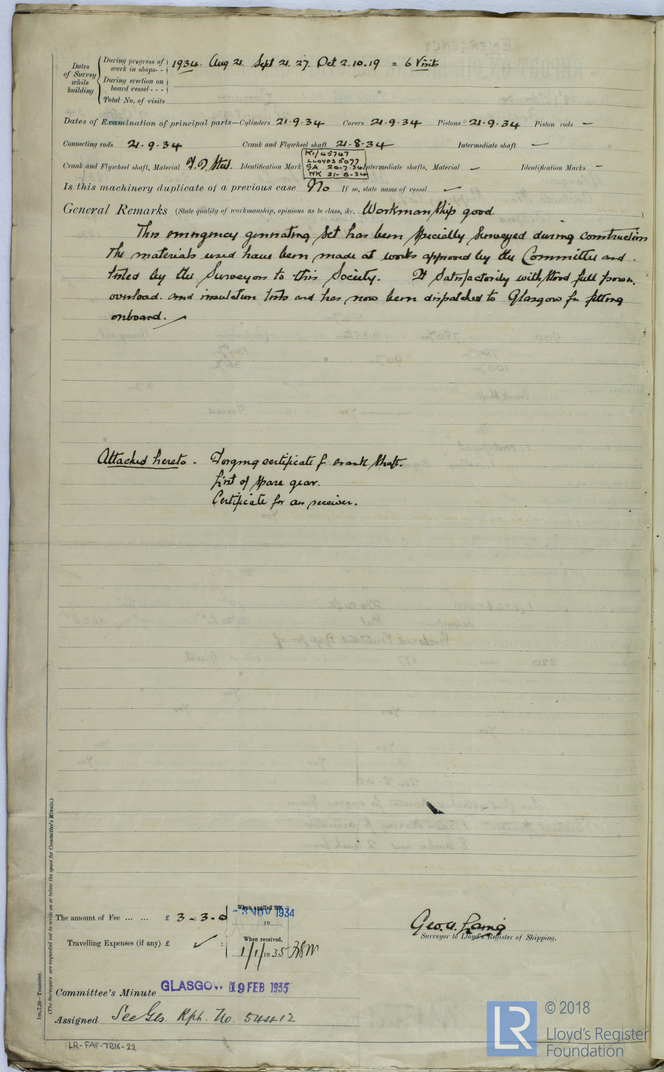 Dates of Survey while building
During progress of work in shops - - 1934. Aug 21. Sept 21. 27. Oct 2. 10. 19 = 6 Visits
During erection on board vessel - - -
Total No. of visits
Dates of Examination of principal parts—Cylinders 21-9-34 Covers 21-9-34 Pistons 21-9-34 Piston rods -
Connecting rods 21-9-34 Crank and Flywheel shaft 21-8-34 Intermediate shaft -
Crank and Flywheel shaft, Material Steel Identification Mark LLOYDS 5077 Intermediate shafts, Material - Identification Marks -
20-7-34
WK 21-8-34
Is this machinery duplicate of a previous case No If so, state name of vessel
General Remarks (State quality of workmanship, opinions as to class, &c. Workmanship good
This emergency generating set has been specially surveyed during construction
the materials used have been made at works approved by the Committee and
tested by the Surveyors to this Society. It satisfactorily withstood full power,
overload and insulation tests and has now been dispatched to Glasgow for fitting
onboard.
Attached hereto. Forging certificate for crank shaft.
List of spare gear.
Certificate for air receiver.
The amount of Fee ... ... £ 3-3-0
When applied for,
-3 NOV 1934
19
Travelling Expenses (if any) £
When received,
1/1/1935
Geo. A. Laing
Surveyor to Lloyd's Register of Shipping.
Committee's Minute GLASGOW 19 FEB 1935
Assigned See Gls. Rpt. No. 54412
(The Surveyors are requested not to write on or below the space for Committee's Minute.)
LR-FAF-TB16-22
LR
© 2018
Lloyd's Register
Foundation